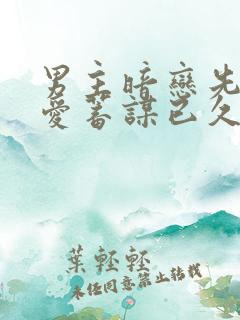 男主暗戀先
愛蓄謀已久
葉輕輕
未经同意禁止转载